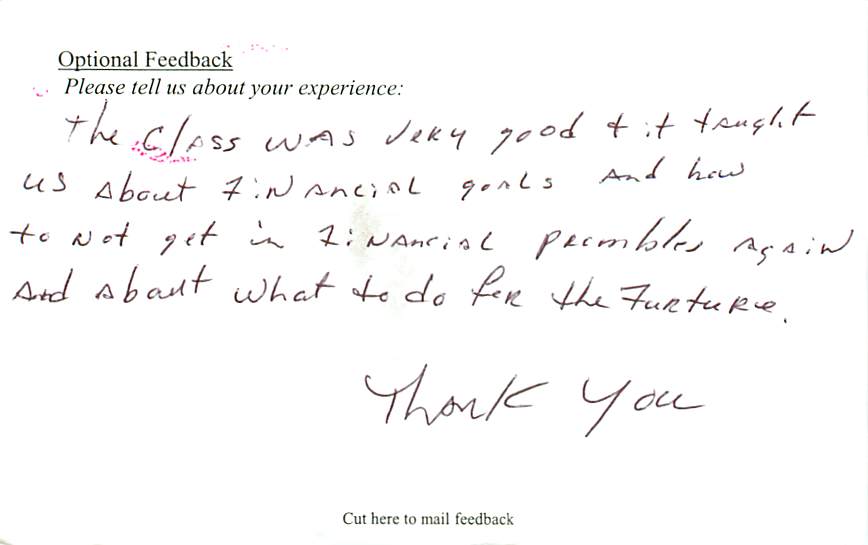 Optional Feedback
Please tell us about your experience:
The Class was very good & it taught
us about Financial goals and how
to not get in Financial prombles again
And about what to do for the Furture.
Thank You
Cut here to mail feedback